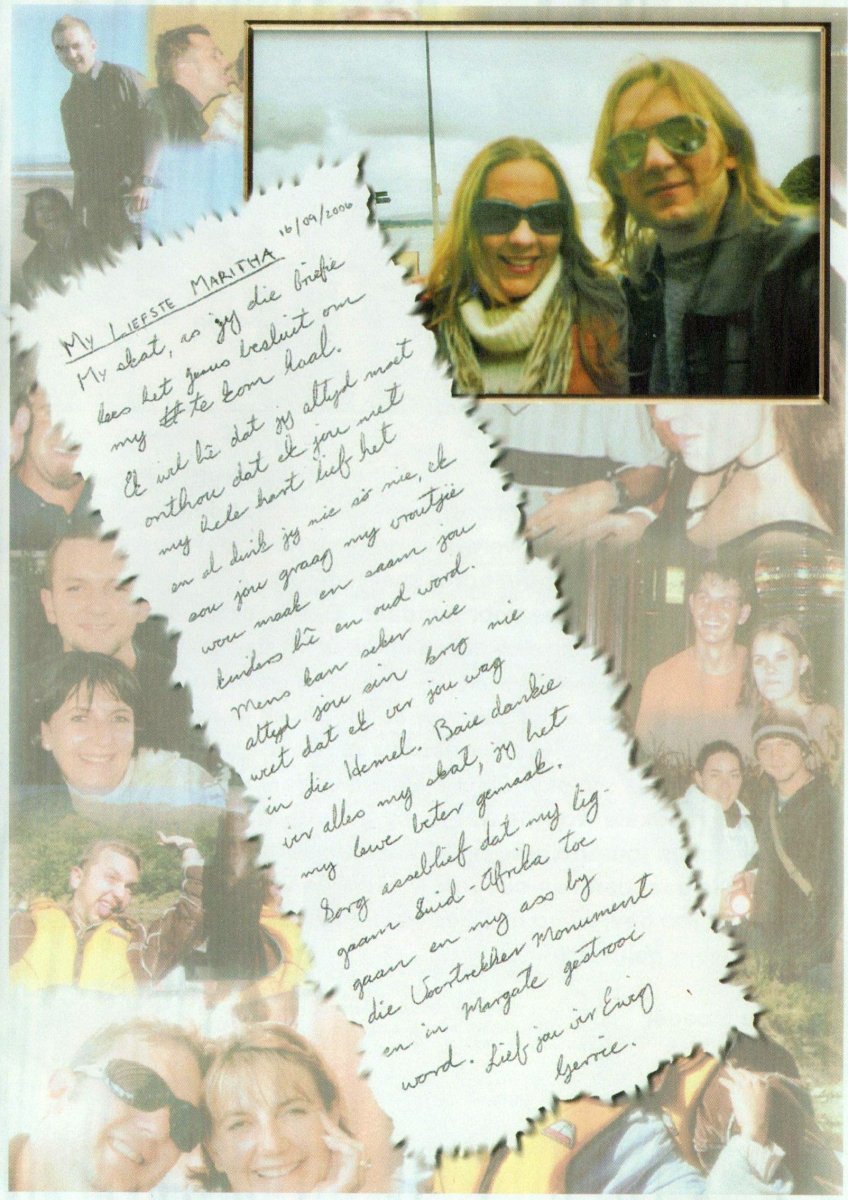 16/09/2006
My Liefste Maritha
My skat, as jy die briefie
lees het Jesus besluit om
my te kom haal.
Ek wil hê dat jy altyd moet
onthou dat ek jou met
my hele hart lief het
en al dink jy nie so nie, ek
sou jou graag my vroutjie
wou maak en saam jou
kinders hê en oud word.
Mens kan seker nie
altyd jou sin kry nie
weet dat ek vir jou wag
in die Hemel. Baie dankie
vir alles my skat, jy het
my lewe beter gemaak.
Sorg asseblief dat my lig-
gaam Suid-Afrika toe
gaan en my ass by
die Voortrekker Monument
en in Margate gestrooi
word. Lief jou vir Ewig
Gerrie.